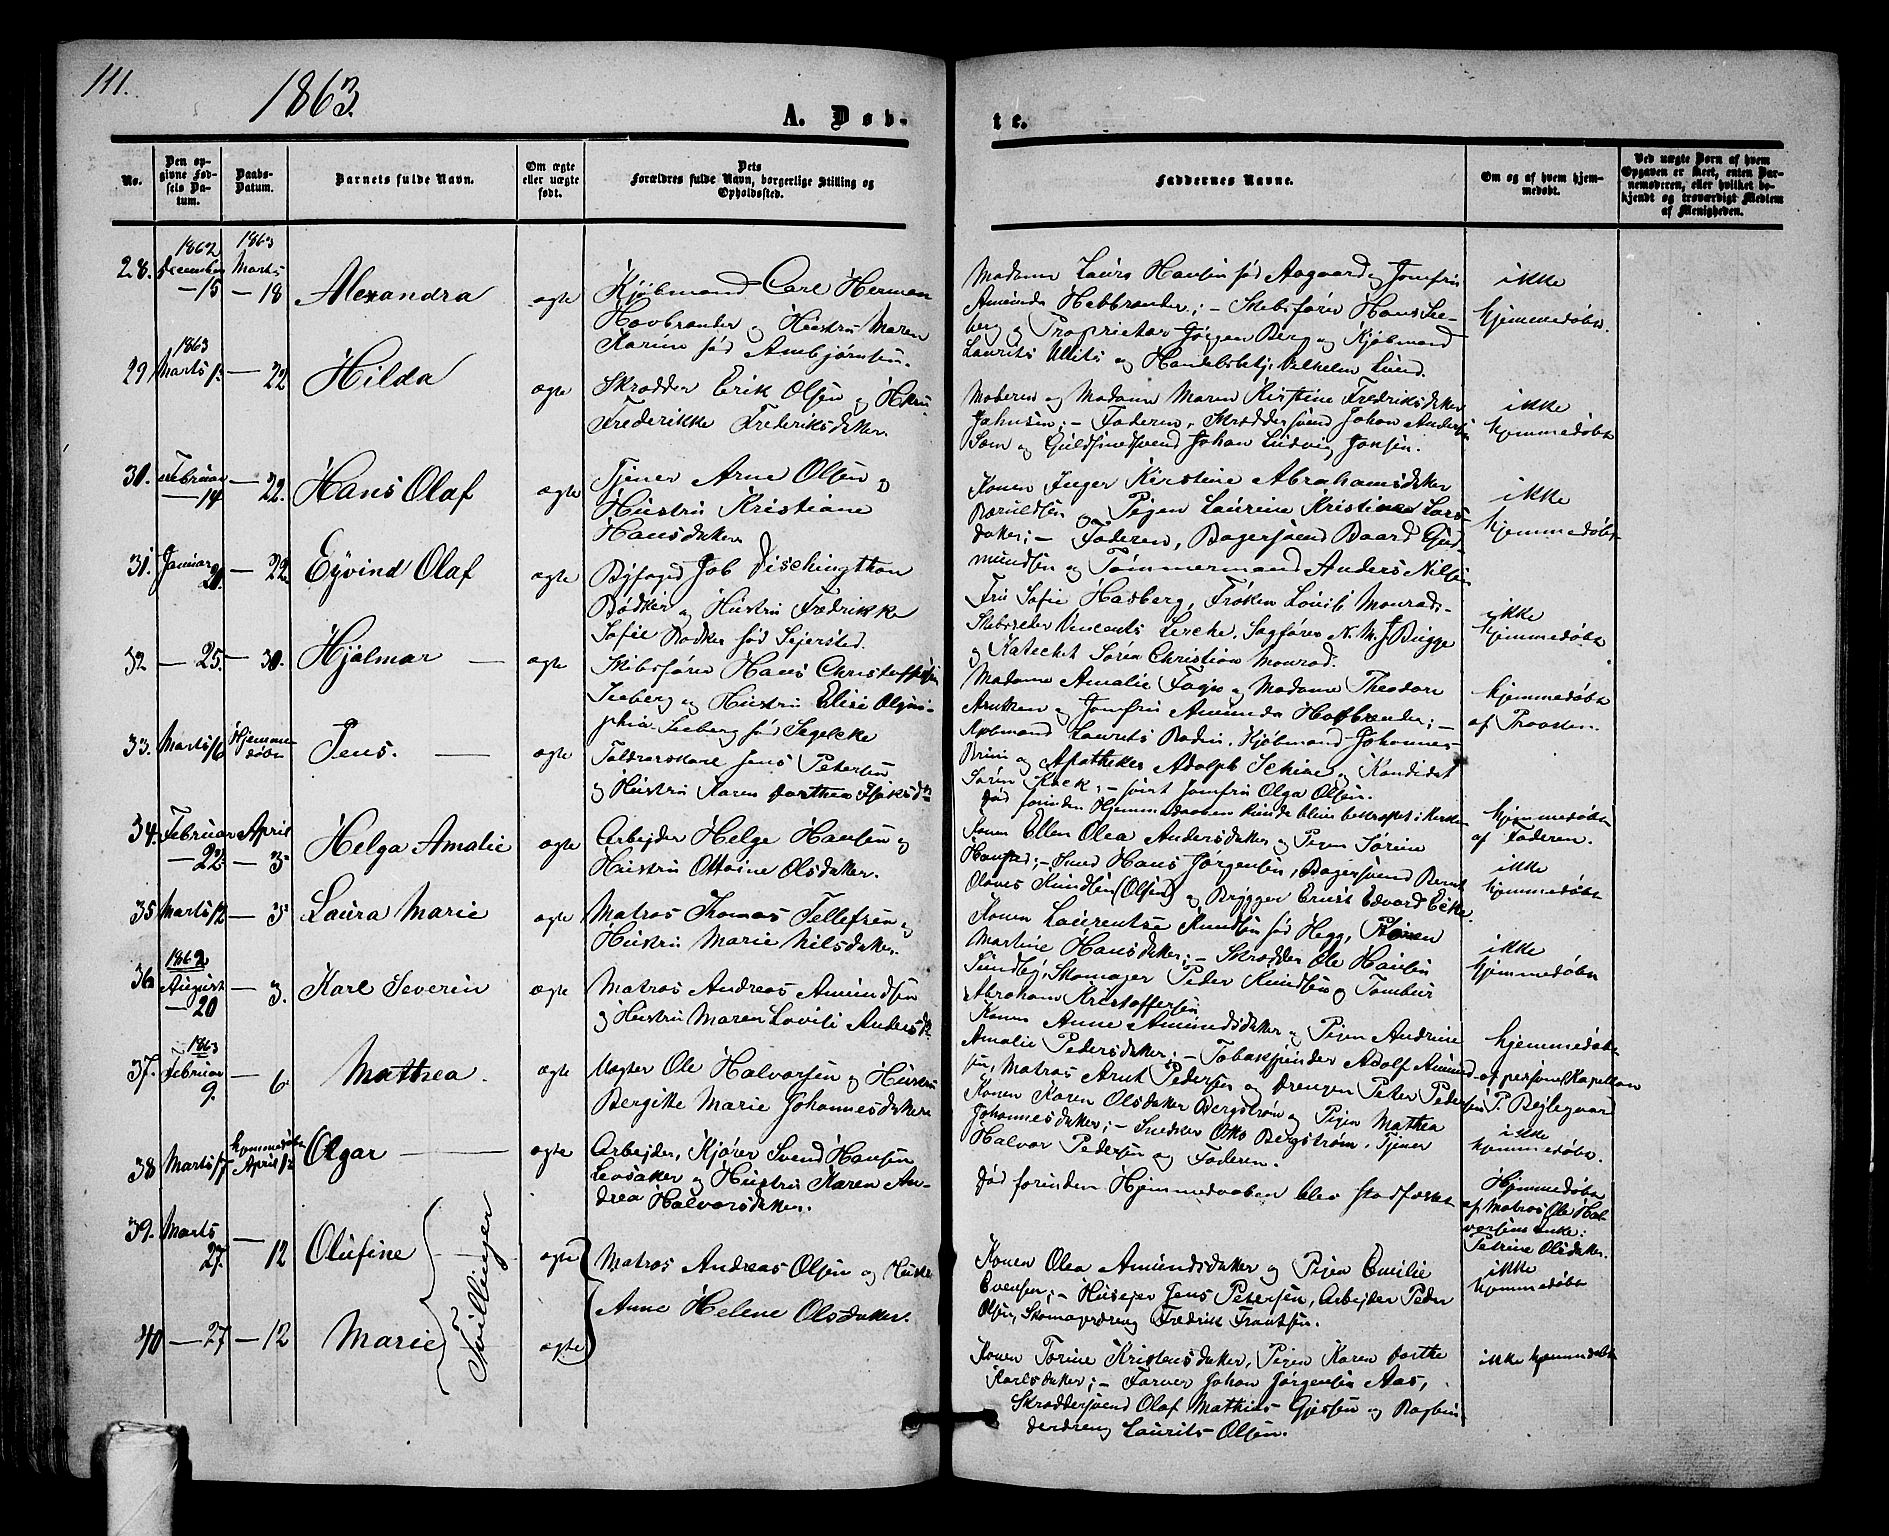 111.
1863.
A. Døb-
te.
No.
Den op-
givne Fød-
sels Da-
tum.
Daabs-
Datum.
Barnets fulde Navn.
Om ægte
eller uægte
født.
Dets
Forældres fulde Navn, borgerlige Stilling og
Opholdssted.
Faddernes Navne.
Om og af hvem hjem-
medøbt.
Ved uægte Børn af hvem
Opgaven er skeet, enten Bar-
nemoderen, eller hvilket be-
kjendt og troværdigt Medlem
af Menigheden.
28.
1862
December
— 15
1863
Marts
— 18
Alexandra
ægte
Kjøbmand Carl Herman
Havbrander og Hustru Maren
Karine født Ambjørnsen.
Madame Laura Hansen født Aagaard og Jomfru
Amunda Hobbrander; — Skibsfører Hans See-
berg og Proprietær Jørgen Berg og Kjøbmand
Laurits Ullits og Handelsbetj. Vilhelm Lund.
ikke
hjemmedøbt.
29
1863
Marts
— 22
Hilda
ægte
Skrædder Erik Olsen og Hstru
Frederikke Frederiksdatter.
Moderen og Madame Maren Kirstine Fredriksdatter
Johnsen; — Faderen, Skræddersvend Johan Andersen
Som og Guldsmedsvend Johan Ludvig Jonsen.
ikke
hjemmedøbt
30.
Februar
— 14
— 22.
Hans Olaf
ægte
Tjener Arne Olsen og
Hustru Kristiane
Hansdatter
Konen Inger Kirstine Abrahamsdatter
og Pigen Laurine Kristine Lars-
datter; — Faderen, Bagersvend Baard Gud-
mundsen og Tømmermand Anders Nilsen
ikke
hjemmedøbt
31.
Januar
20.
— 22
Eyvind Olaf
ægte
Byfoged Job Dischingthon
Bødker og Hustru Fredrikke
Sofie Bødker født Sejersted.
Fru Sofie Hasberg, Frøken Lovise Monrad-
Skibsreder Vincents Lerche, Sagfører N. M. J Bugge
og Katechet Søren Christian Monrad.
ikke
hjemmedøbt
32
— 25.
— 30.
Hjalmar —
ægte
Skibsfører Hans Christoffersen
Seeberg og Hustru Elise Olym-
phia Seeberg født Segelcke
Madame Amalie Fagje og Madame Theodore
og Jomfru Amunda Hobbrander; —
Laurits Bodin, Kjøbmand Johannes
Bruun og Apotheker Adolph Schive og Kandidat
Søren Kock; —
hjemmedøbt
af Provsten.
33.
Marts 16
Hjemme-
døbt
Jens. —
ægte
Toldroerskarl Jens Petersen
og Hustru Karen Dorthea
Jomfru Olga Olsen.
Død forinden Hjemmedaaben kunde blive bekræftet i Kirken
hjemmedøbt
af Faderen.
34.
Februar
— 22
April
— 3
Helga Amalie
ægte
Arbejder Helge Hansen og
Hustru Ottoine Olsdatter.
Konen Ellen Olea Andersdatter og Pigen Sørine
Hansen; — Smed Hans Jørgensen, Bagersvend Bernt
Olaves Knudsen (Olsen) og Brygger Ernst Edvard Ecke.
ikke
hjemmedøbt
35
Marts 12
— 3
Laura Marie
ægte
Matros Thomas Tellefsen og
Hustru Marie Nilsdatter.
Konen Laurentse Knudsen født Hegg, Konen
Martine Hansdatter; — Skrædder Ole Hansen
Sundby, Skomager Peder Knudsen og Tambur
Abraham Kristoffersen
ikke
hjemmedøbt
36
1862
August
— 20
— 3.
Karl Severin
ægte
Matros Andreas Amundsen
og Hustru Maren Lovise Andersdtr
Konen Anne Amundsdatter og Pigen Andrine
Amalie Pedersdatter; — Tobakspinder Adolf Amund-
sen, Matros Arnt Pedersen og Drengen Peter Pedersen
hjemmedøbt
af personel Kapellan
P. Bejlegaard
37.
1863
Februar
9.
— 6
Mathea.
ægte
Vægter Ole Halvorsen og Hustru
Bergitte Marie Johannesdatter
Konen Karen Olsdatter Bergstrøm og Pigen Mathea
Johannesdatter; — Snedker Otto Bergstrøm, Tjener
Halvor Pedersen og Faderen.
ikke
hjemmedøbt.
38
Marts 17
hjemmedøbt
April 1
Olgar —
ægte
Arbejder, Kjører Svend Hansen
Løvsaker og Hustru Karen An-
drea Halvorsdatter.
Død forinden Hjemmedaaben blev stadfæstet
Hjemmedøbt
af Matros Ole Hal-
vorsens Enke:
Petrine Olsdatter.
39.
Marts
27.
— 12
Olufine
Tvillinger
ægte
Matros Andreas Olsen og Hustru
Anne Helene Olsdatter.
Konen Olea Amundsdatter og Pigen Emilie
Evensen; — Husejer Jens Petersen, Arbejder Peder
Olsen, Skomagerdreng Fredrik Frantsen.
ikke
hjemmedøbt
40
— 27
— 12
Marie
ægte
Konen Torine Kristensdatter, Pigen Karen Dorthe
Karlsdatter; — Farver Johan Jørgensen Aas,
Skræddersvend Olaf Mathias Gjessen og Bogbin-
derdreng Laurits Olsen.
ikke hjemmedøbt